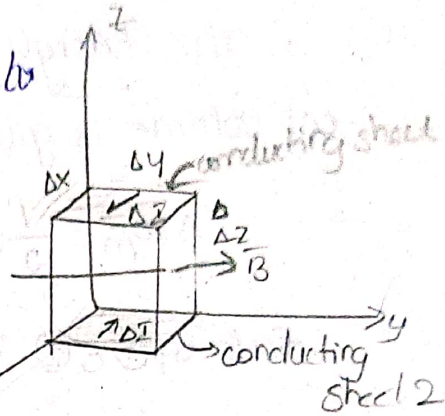 Z
ΔY
conducting sheet
ΔX
ΔI
Δ
ΔZ
B
y
ΔI
conducting
sheet 2